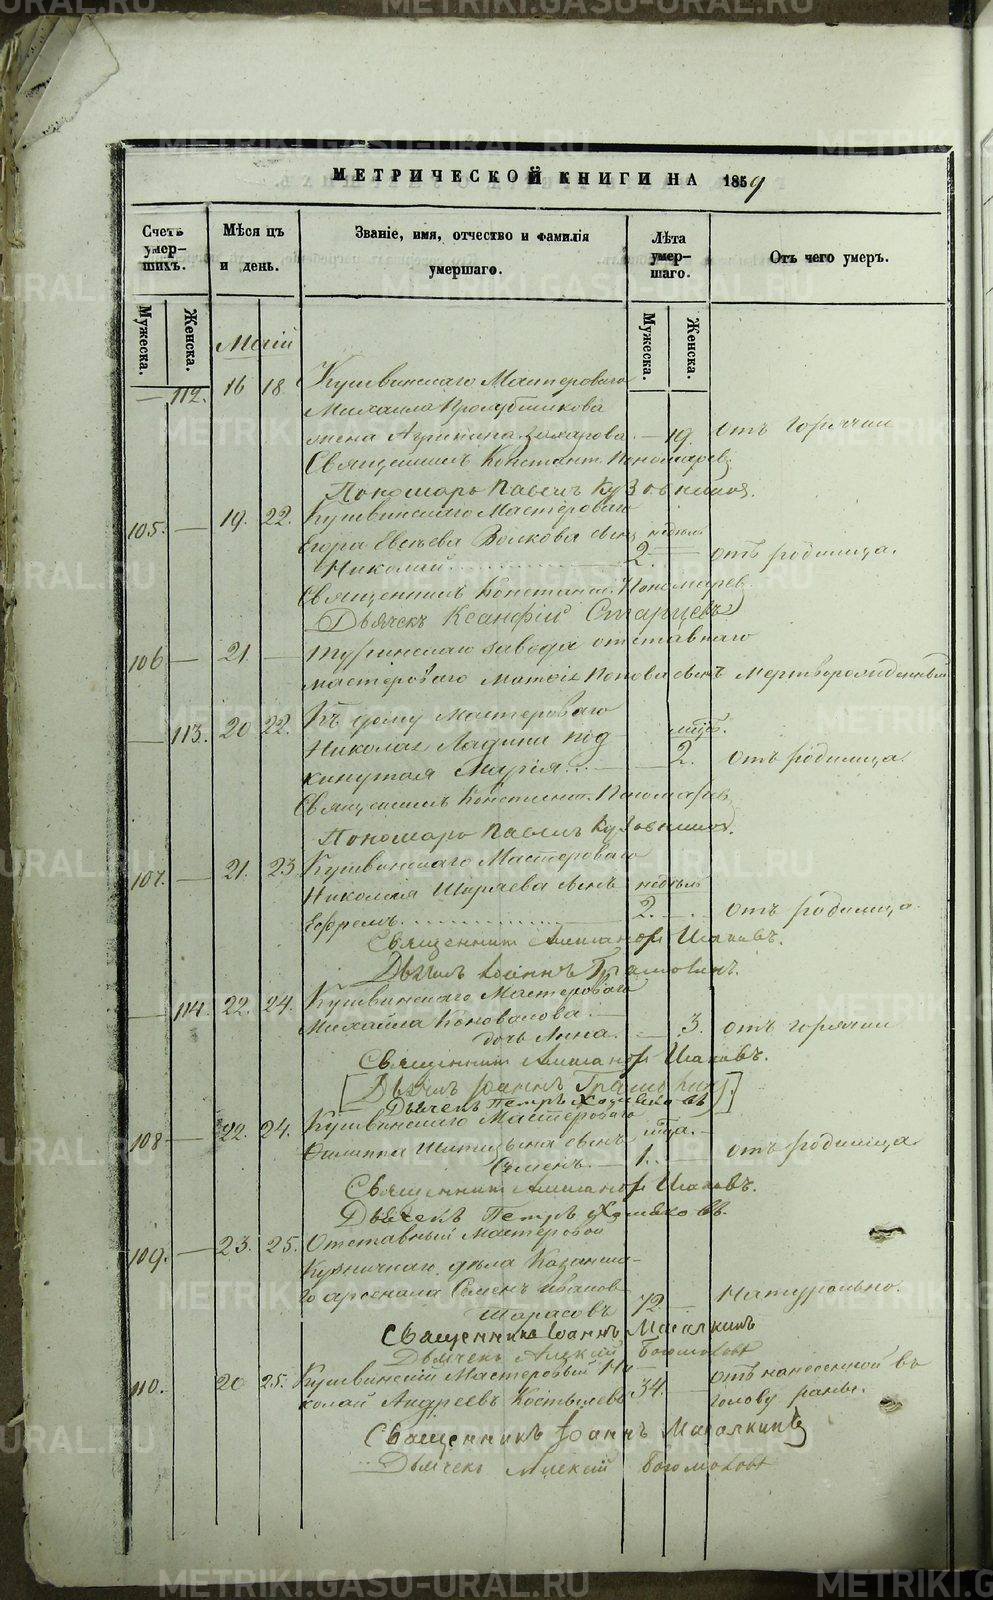 МЕТРИЧЕСКОЙ КНИГИ НА 1859
Счетъ умер-шихъ. Мѣсяцъ и день. Званіе, имя, отчество и фамилія умершаго. Лѣта умер-шаго. Отъ чего умеръ.
Мужеска. Женска. Мужеска. Женска.
Маій
— 112. 16 18 Кушвинскаго Мастероваго
Михаила
жена Захарова — 19. отъ горячки
Священникъ Констант. Пономаревъ
Пономарь Павелъ Кузовниковъ.
105. — 19. 22. Кушвинскаго Мастероваго
Егора Евсѣева Волкова сынъ недѣль
Николай 2. — отъ родимца.
Священникъ Констант. Пономаревъ
Дьячекъ Ксанфій Старцевъ
106 — 21 — Туринскаго завода отставнаго
мастероваго Матвѣя Попова сынъ Мертворожденный
— 113. 20 22. Къ дому Мастероваго
Николая Ладыги под- мѣс.
кинутая Марія — 2. отъ родимца.
Священникъ Констант. Пономаревъ
Пономарь Павелъ Кузовниковъ.
107. — 21. 23 Кушвинскаго Мастероваго
Николая Ширяева сынъ недѣль
Ефремъ 2. — отъ родимца.
Священник Исаковъ.
Іоаннъ
— 114. 22. 24. Кушвинскаго Мастероваго
Михаила Коновалова
дочь Анна. — 3. отъ горячки
Священник Исаковъ.
[Іоаннъ]
Дьячекъ Петръ Хомяковъ
108 — 22. 24. Кушвинскаго Мастероваго
Филиппа Шитицына сынъ мѣца. —
Семенъ. — 1. отъ родимца.
Священник Исаковъ.
Дьячекъ Петръ Хомяковъ.
109. — 23. 25. Отставный Мастеровой
Кузничнаго дѣла Казанска-
го арсенала Семенъ Ивановъ
Тарасовъ 72 — Натурально.
Священникъ Іоаннъ Масалкинъ
Дьячекъ Алексій Богомоловъ
110. 20 25. Кушвинскій Мастеровый Ни-
колай Андреевъ Костылевъ 34. — отъ нанесенной въ
голову раны.
Священникъ Іоаннъ Масалкинъ
Дьячекъ Алексій Богомоловъ
METRIKI.GASO-URAL.RU